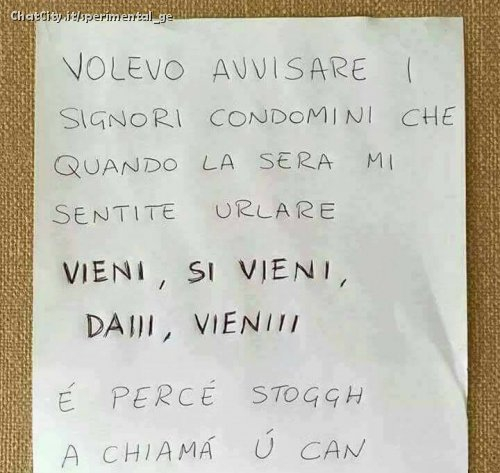 ChatCity.it/sperimental_ge
VOLEVO AVVISARE I
SIGNORI CONDOMINI CHE
QUANDO LA SERA MI
SENTITE URLARE
VIENI, SI VIENI,
DAIII, VIENIII
É PERCÉ STOGGH
A CHIAMÁ Ú CAN